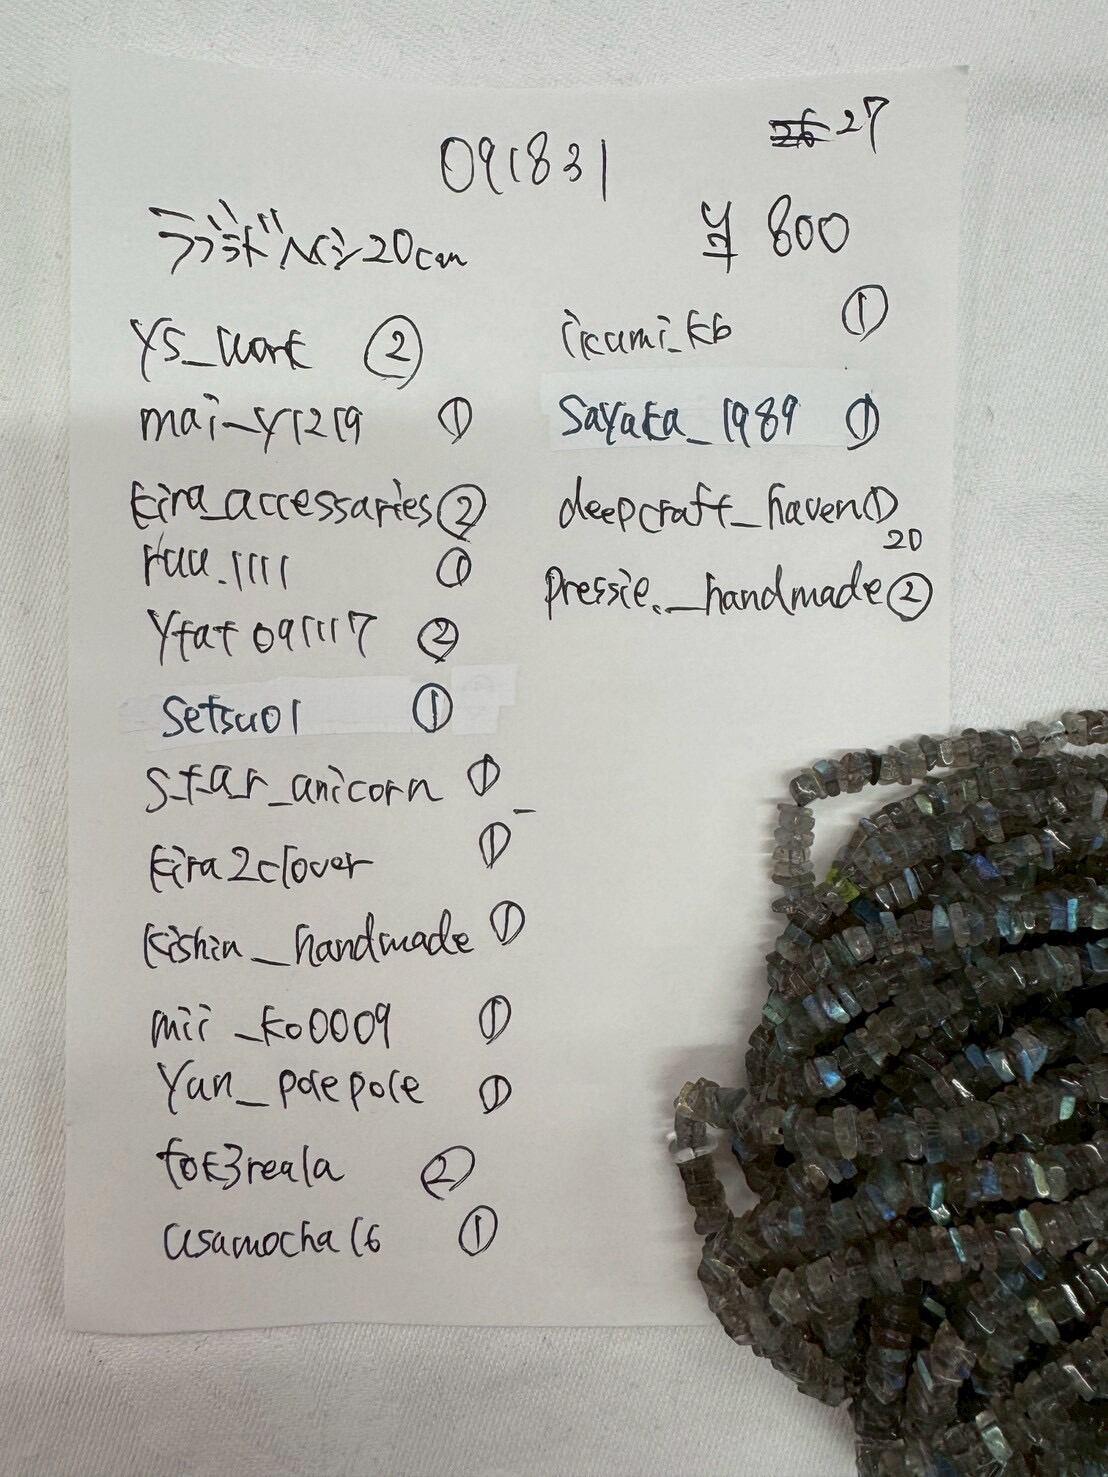 091831
27
ラブラドヘイシ20cm
¥800
YS_work ②
mai_y1219 ①
kira_accessaries ②
ruu.1111 ①
Ytat091117 ②
Setsu01 ①
star_unicorn ①
kira2clover ①
kishin_handmade ①
mii_ko0009 ①
Yun_polepole ①
tok3reala ②
usamocha16 ①
ikumi_kb ①
Sayaka_1989 ①
deepcraft_haven ①
20
pressie._handmade ②